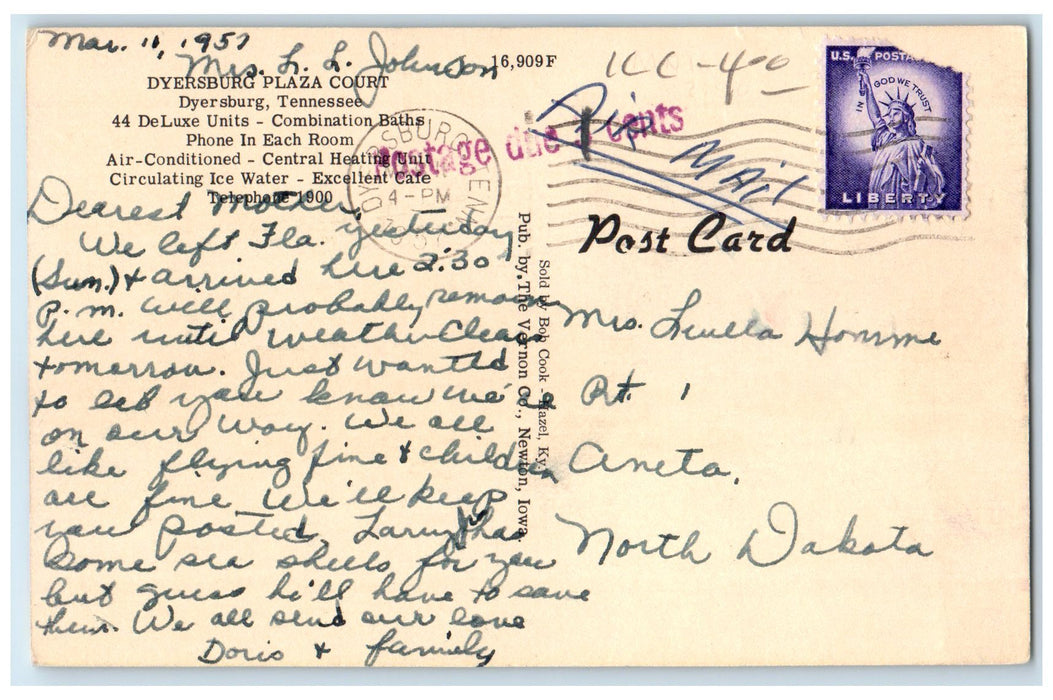 Mar. 11, 1957
Mrs. L. L. Johnson
16,909F
DYERSBURG PLAZA COURT
Dyersburg, Tennessee
44 DeLuxe Units - Combination Baths
Phone In Each Room
Air-Conditioned - Central Heating Unit
Circulating Ice Water - Excellent Cafe
Telephone 1900
Dearest Mother,
We left Fla. yesterday
(Sun.) & arrived here 2:30
p.m. will probably remain
here until weather clears
tomorrow. Just wanted
to let you know we're
on our way. We all
like flying fine & children
are fine. We'll keep
you posted. Larry has
some sea shells for you
but guess he'll have to save
them. We all send our love
Doris & family
Pub. by The Vernon Co., Newton, Iowa.
Sold by Bob Cook - Hazel, Ky.
DYERSBURG TENN.
4 - PM
Postage due 1 cents
Air Mail
U.S. POSTA
IN GOD WE TRUST
LIBERTY
Post Card
Mrs. Luella Homme
Rt. 1
Aneta,
North Dakota